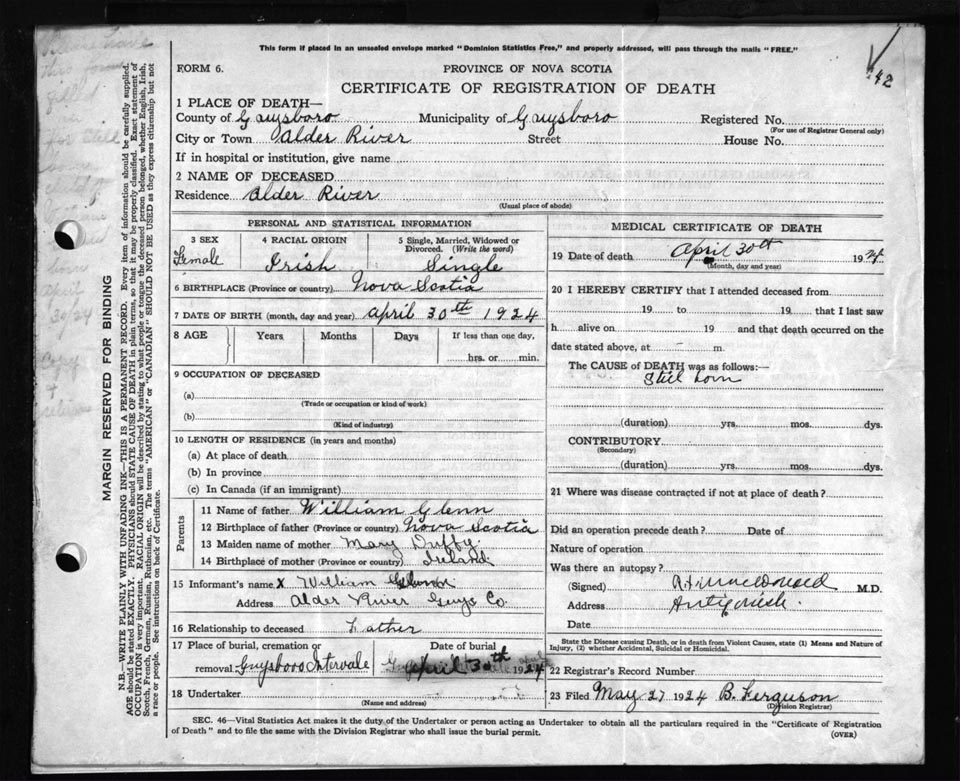 This form if placed in an unsealed envelope marked "Dominion Statistics Free," and properly addressed, will pass through the mails "FREE."
FORM 6.
PROVINCE OF NOVA SCOTIA
42
CERTIFICATE OF REGISTRATION OF DEATH
1 PLACE OF DEATH—
County of Gaysboro Municipality of Gaysboro Registered No.
(For use of Registrar General only)
City or Town Alder River Street House No.
If in hospital or institution, give name
2 NAME OF DECEASED
Residence Alder River
(Usual place of abode)
PERSONAL AND STATISTICAL INFORMATION
3 SEX 4 RACIAL ORIGIN 5 Single, Married, Widowed or Divorced. (Write the word)
Female Irish Single
6 BIRTHPLACE (Province or country) Nova Scotia
7 DATE OF BIRTH (month, day and year) april 30th 1924
8 AGE Years Months Days If less than one day,
hrs. or min.
9 OCCUPATION OF DECEASED
(a)
(Trade or occupation or kind of work)
(b)
(Kind of industry)
10 LENGTH OF RESIDENCE (in years and months)
(a) At place of death
(b) In province
(c) In Canada (if an immigrant)
Parents
11 Name of father William Glenn
12 Birthplace of father (Province or country) Nova Scotia
13 Maiden name of mother Mary Duffy
14 Birthplace of mother (Province or country) Ireland
15 Informant's name X William
Address Alder River Guys Co.
16 Relationship to deceased Father
17 Place of burial, cremation or Date of burial
removal Guysboro Intervale April 30th 1924
18 Undertaker
(Name and address)
MEDICAL CERTIFICATE OF DEATH
19 Date of death April 30th 1924
(Month, day and year)
20 I HEREBY CERTIFY that I attended deceased from
19 to 19 that I last saw
h alive on 19 and that death occurred on the
date stated above, at - m.
The CAUSE of DEATH was as follows:—
Still born
(duration) yrs. mos. dys.
CONTRIBUTORY
(Secondary)
(duration) yrs. mos. dys.
21 Where was disease contracted if not at place of death?
Did an operation precede death? Date of
Nature of operation
Was there an autopsy?
(Signed) M.D.
Address Antigonish.
Date
State the Disease causing Death, or in death from Violent Causes, state (1) Means and Nature of Injury, (2) whether Accidental, Suicidal or Homicidal.
22 Registrar's Record Number
23 Filed May 27 1924 B. Ferguson
(Division Registrar)
SEC. 46—Vital Statistics Act makes it the duty of the Undertaker or person acting as Undertaker to obtain all the particulars required in the "Certificate of Registration
of Death" and to file the same with the Division Registrar who shall issue the burial permit.
(OVER)
MARGIN RESERVED FOR BINDING
N.B.—WRITE PLAINLY WITH UNFADING INK—THIS IS A PERMANENT RECORD. Every item of information should be carefully supplied.
AGE should be stated EXACTLY. PHYSICIANS should STATE CAUSE OF DEATH in plain terms, so that it may be properly classified. Exact statement of
OCCUPATION is very important. RACIAL ORIGIN will be described by stating to what people or tongue the deceased person belonged, whether English, Irish,
Scotch, French, German, Russian, Ruthenian, etc. The terms "AMERICAN" or "CANADIAN" SHOULD NOT BE USED as they express citizenship but not
a race or people. See instructions on back of Certificate.